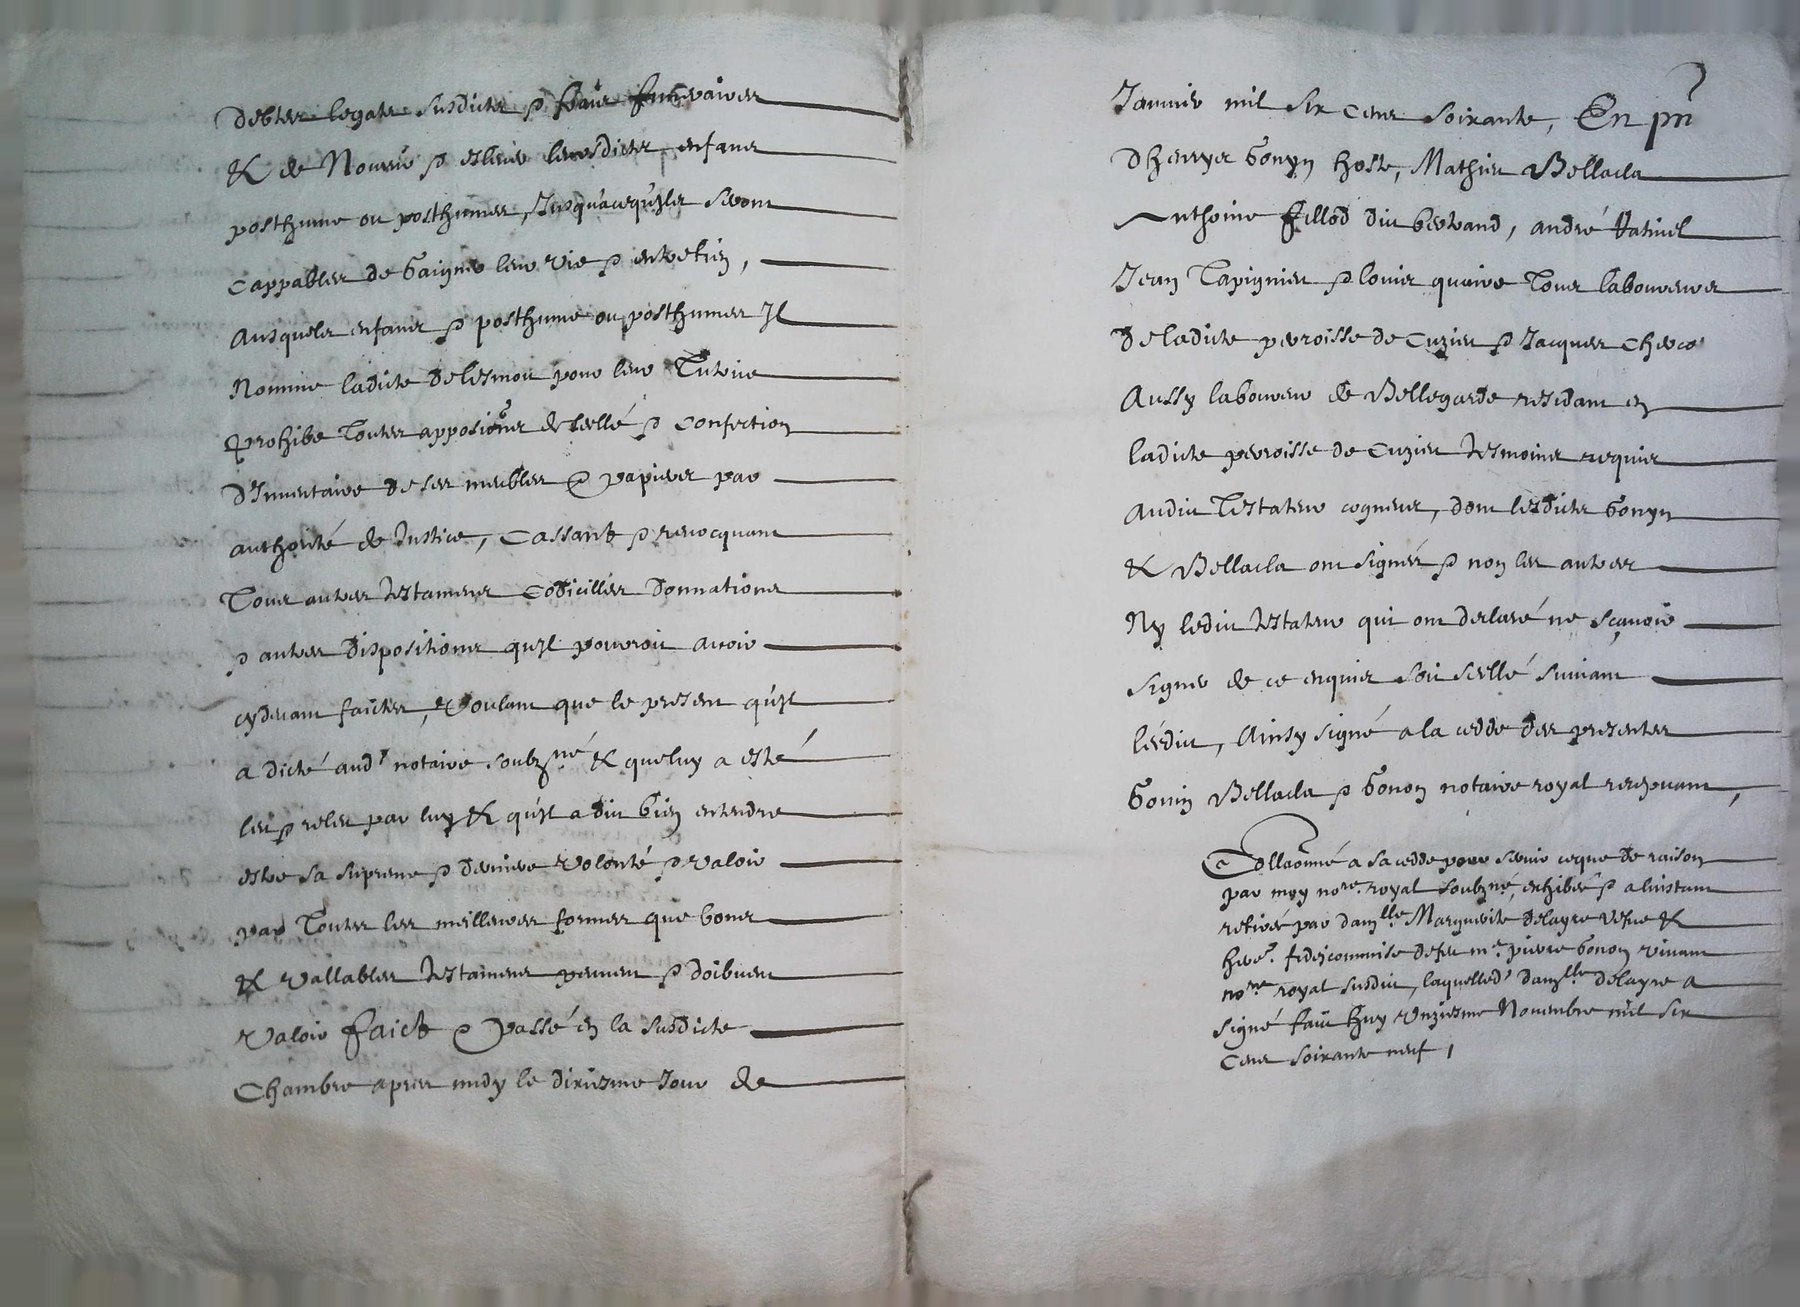 debtes legats susdicts & fraiz funeraires
& de Nourrir & eslever lesdicts enfans
posthume ou posthumes, Jusqu'acequ'jls seront
Cappables de Gaigner leur vie & entretien,
Ausquels enfans & posthume ou posthumes Jl
Nomme ladicte delesmon pour leur Tutrice
Prohibe toutes apposiõns de scellé & Confection
d'Inventaire de ses meubles & papiers par
authorité de Justice, Cassant & revocquant
Tous autres testamens Codicilles Donnations
& autres dispositions qu'jl pourroit avoir
cydevant faictes, Voulant que le present qu'jl
a dicté aud.t notaire soubz.né & queluy a esté
leu & releu par luy & qu'jl a dit bien entendre
estre sa supreme & derniere volonté & valoir
par Toutes les meilleures formes que bons
& vallables testamens peuvent & doibvent
Valoir faict & passé en la susdicte
Chambre apres midy le dixiesme Jour de
Janvier mil six cens soixante, En pñ
d'henrys Gonyn hoste, Mathieu Bellacla
Anthoine fillod dit bertrand, andré
Jean Tapignieu & louis quaire Tous laboureurs
de ladicte perroisse de Cuzieu & Jacques
Aussy laboureur de Bellegarde residant en
ladicte perroisse de Cuzieu tesmoins requis
Audit Testateur cogneus, dont lesdicts Gonyn
& Bellacla ont signés & non les autres
Ny ledit testateur qui ont declaré ne sçavoir
signer de ce enquis soit scellé suivant
l'esdit, Ainsy signé a la cedde des presentes
Gonin Bellacla & Gonon notaire royal recepvant,
Collaõnné a sa cedde pour servir ceque de raison
par moy no.re royal soubz.né, exhibée & a l'instant
retirée par dam.lle Marguerite delayre vefve &
here. fideicommise de feu m.e pierre Gonon vivant
no.re royal susdit, laquelled.t dam.lle delayre a
signé fait huy unziesme Novembre mil six
Cens soixante neuf,